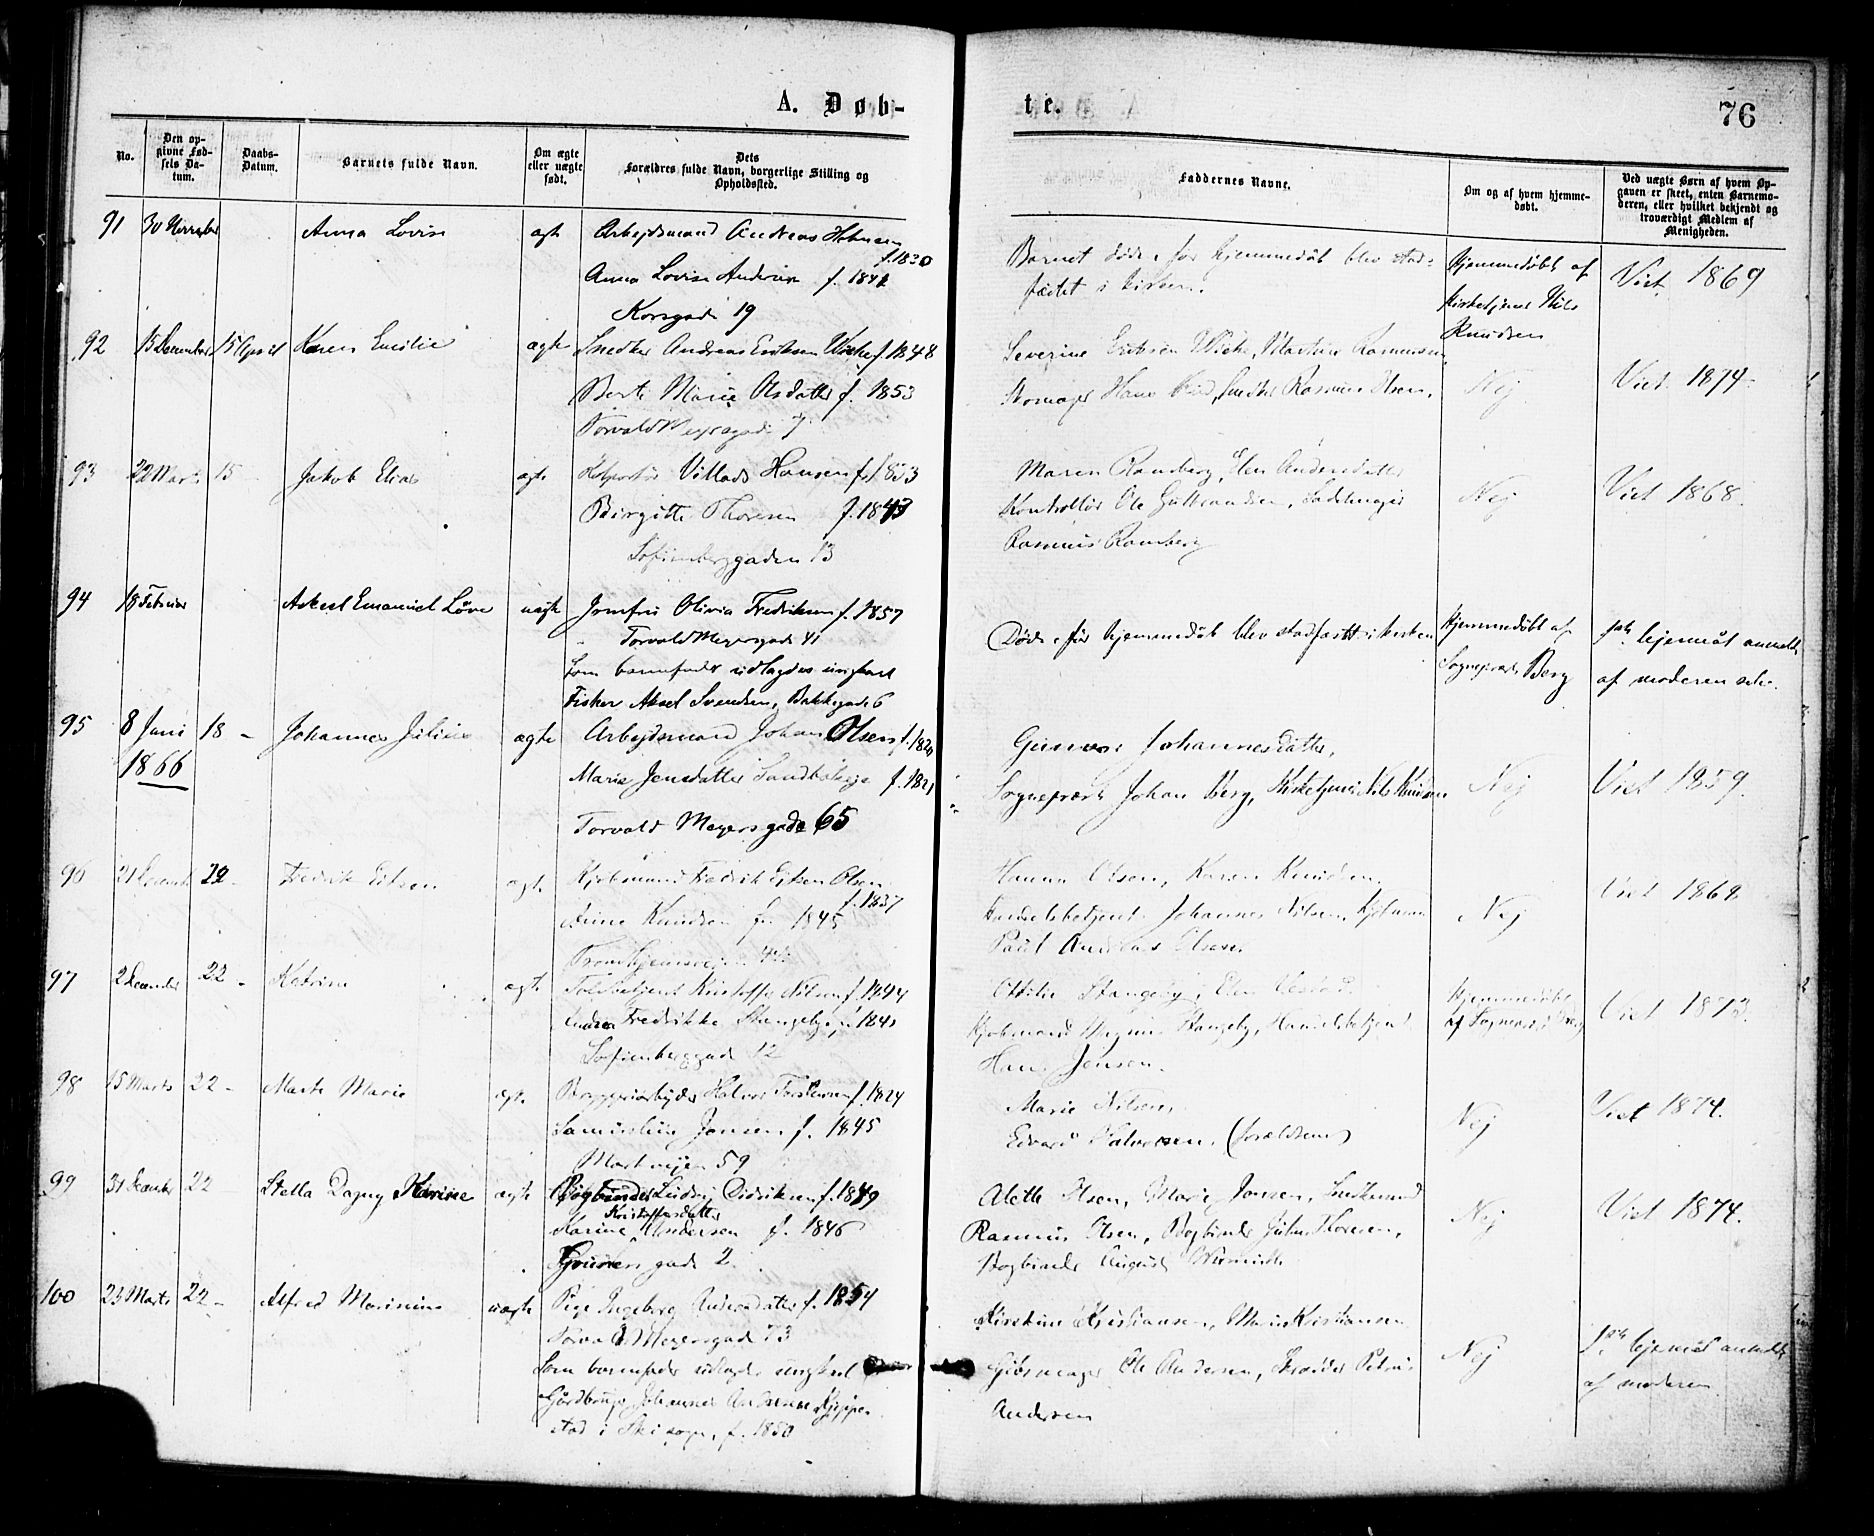 A. Døb-
te.
76
No.
Den op-
givne Fød-
sels Da-
tum.
Daabs-
Datum.
Barnets fulde Navn.
Om ægte
eller uægte
født.
Dets
Forældres fulde Navn, borgerlige Stilling og
Opholdssted.
Faddernes Navne.
Om og af hvem hjemme-
døbt.
Ved uægte Børn af hvem Op-
gaven er skeet, enten Barnemo-
deren, eller hvilket bekjendt og
troværdigt Medlem af
Menigheden.
91
30 November
Anna Lovise
ægte
Arbejdsmand Andreas
f. 1830
Anna Lovise f. 184
Korsgade 19
Barnet døde, før hjemmedåb blev stad-
fæstet i kirken.
Hjemmedøbt af
kirketjener Nils
Knudsen
Viet 1869
92
15 December
15 April
Karen Emilie
ægte
Snedker Andreas Eriksen f. 1848
Berte Marie Olsdatter f. 1853
Torvald Meyersgade 7
Severine Eriksen Martine Rasmussen,
Skomager Hans Snedker Rasmus Olsen.
Nej
Viet 1874.
93
22 Marts
15 -
Jakob Elias
ægte
Villads Hansen f. 1853
Birgitte Thoresen f. 1843
Sofienberggaden 13
Maren Ramberg, Elen Andersdatter
Kontrollør Ole Gulbrandsen, Sadelmager
Rasmus Ramberg
Nej
Viet 1868.
94
18 Februar
Aksel Emanuel Løve
uægte
Jomfru Olivia Fredriksen f. 1857
Torvald Meyersgade 41
Som barnefader udlagdes ungkarl
Fisker Aksel Svendsen, Bakkegade 6
Døde, før hjemmedåb blev stadfæstet i kirken
Hjemmedøbt af
Sogneprest Berg
hjemåt anmeldt
af moderen selv.
95
8 Juni
1866
18 -
Johannes Julius
ægte
Arbejdsmand Johan Olsen f. 182
Marie Jensdatter f. 182
Torvald Meyersgade 65
Gunvor Johannesdatter,
Sogneprest Johan Berg, Kirketjener Nils Knudsen
Nej
Viet 1859.
96
21 December
22 -
Fredrik Eilsen
ægte
Kjøbmand Fredrik Olsen
f. 1837
Knudsen f. 1845
Trondhjemsvejen 44
Hanna Olsen, Karen Knudsen,
Handelsbetjent Johannes Nilsen, Kjøbmand
Paul Andreas Olsen.
Nej
Viet 186
97
2 December
22 -
Katrine
ægte
Toldbetjent Kristoffer Nilsen f. 1844
Fredrikke Stangeby f. 184
Sofienberggade 12
Ottilie Stangeby, Elen
Kjøbmand Stangeby, Handelsbetjent
Hans Jensen.
Hjemmedøbt
af Sogneprest Berg
Viet 1873.
98
15 Marts
22 -
Marte Marie
ægte
Bryggeriarbejder Halvor Torstensen f. 1824
Jansen f. 1845
59
Marie Nilsen,
Edvard Halvorsen, (forældrene)
Nej
Viet 1874.
99
31 December
22 -
Stella Dagny Karine
ægte
Bogbinder Ludvig Didriksen f. 1849
Kristoffersdatter
Karine Andersen f. 1846
gade 2
Alette Olsen, Marie Jansen, Snedkersvend
Rasmus Olsen, Bogbinder Julius Thoresen,
Bogbinder August
Nej
Viet 1874.
100
23 Marts
22 -
Alfred Marinius
uægte
Pige Ingeborg Andersdatter f. 1854
Torvald Meyersgade 73
Som barnefader udlagdes ungkarl
Gårdbruger Johannes Andersen
stad i Ski sogn, f. 1850
Kirstine Kristiansen, Marie Kristiansen
Ole Andersen, Petrus
Andersen
Nej
hjemåt anmeldt
af moderen